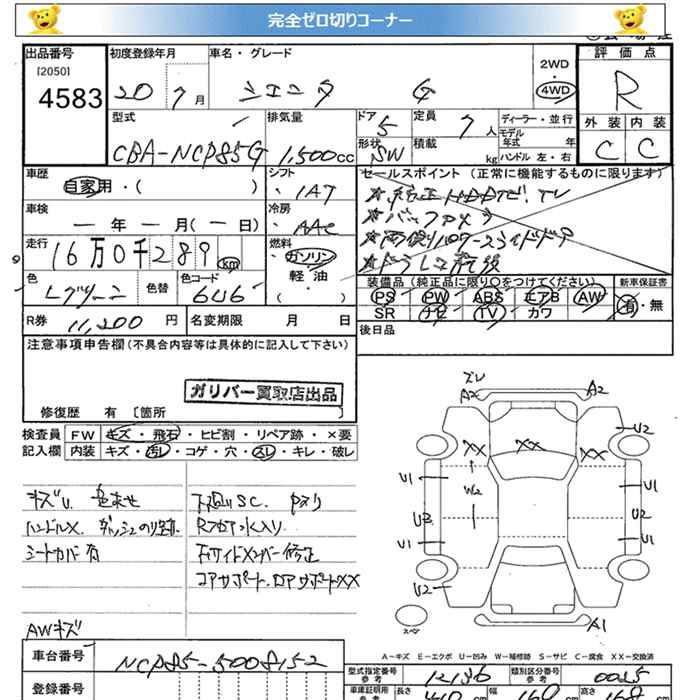 完全ゼロ切りコーナー
出品番号 初度登録年月 車名・グレード 2WD 4WD 評価点
[2050]
4583 20 7月 シエンタ G R
型式 排気量 ドア 5 定員 7人 ディーラー・並行 外装 内装
CBA-NCP85G 1,500cc 形状 SW 積載 kg モデル年式 年 ハンドル 左・右 C C
車歴 シフト セールスポイント (正常に機能するものに限ります)
自家用・( ) ・IAT ★純正HDDナビ. TV
車検 冷房 ★バックカメラ
ー年ー月(ー日) ・AAC ★両側パワースライドドア
走行 燃料 ★ドラレコ前後
16万0千289km ガソリン
軽・油
( )
色 色替 色コード 装備品 (純正品に限り○をつけてください) 新車保証書
Lグリーン 6U6 PS PW ABS エアB AW 有・無
SR ナビ TV カワ
R券 11,200円 名変期限 月 日 後日品
注意事項申告欄(不具合内容等は具体的に記入して下さい)
ガリバー買取店出品
修復歴 有 [箇所 ]
検査員 FW キズ・飛石・ヒビ割・リペア跡・×要
記入欄 内装 キズ・汚レ・コゲ・穴・スレ・キレ・破レ
キズU. 色あせ 下廻りSC. Pサリ
ハンドルX. ダッシュのり跡 Rフロア水入り
シートカバー有 Fサイドメンバー修正
コアサポート. ロアサポートXX
AWキズ
ズレ
A2 A2
U2
XX XX XX
U1 W2 U1
U3 U2
U1 U1
U2
A1
スペア
A-キズ E-エクボ U-凹み W-補修跡 S-サビ C-腐食 XX-交換済
車台番号 NCP85-5008152
登録番号
型式指定番号 参考 12136 類別区分番号 参考 0025
車庫証明用 参考 長さ 410cm 幅 169cm 高さ 168cm